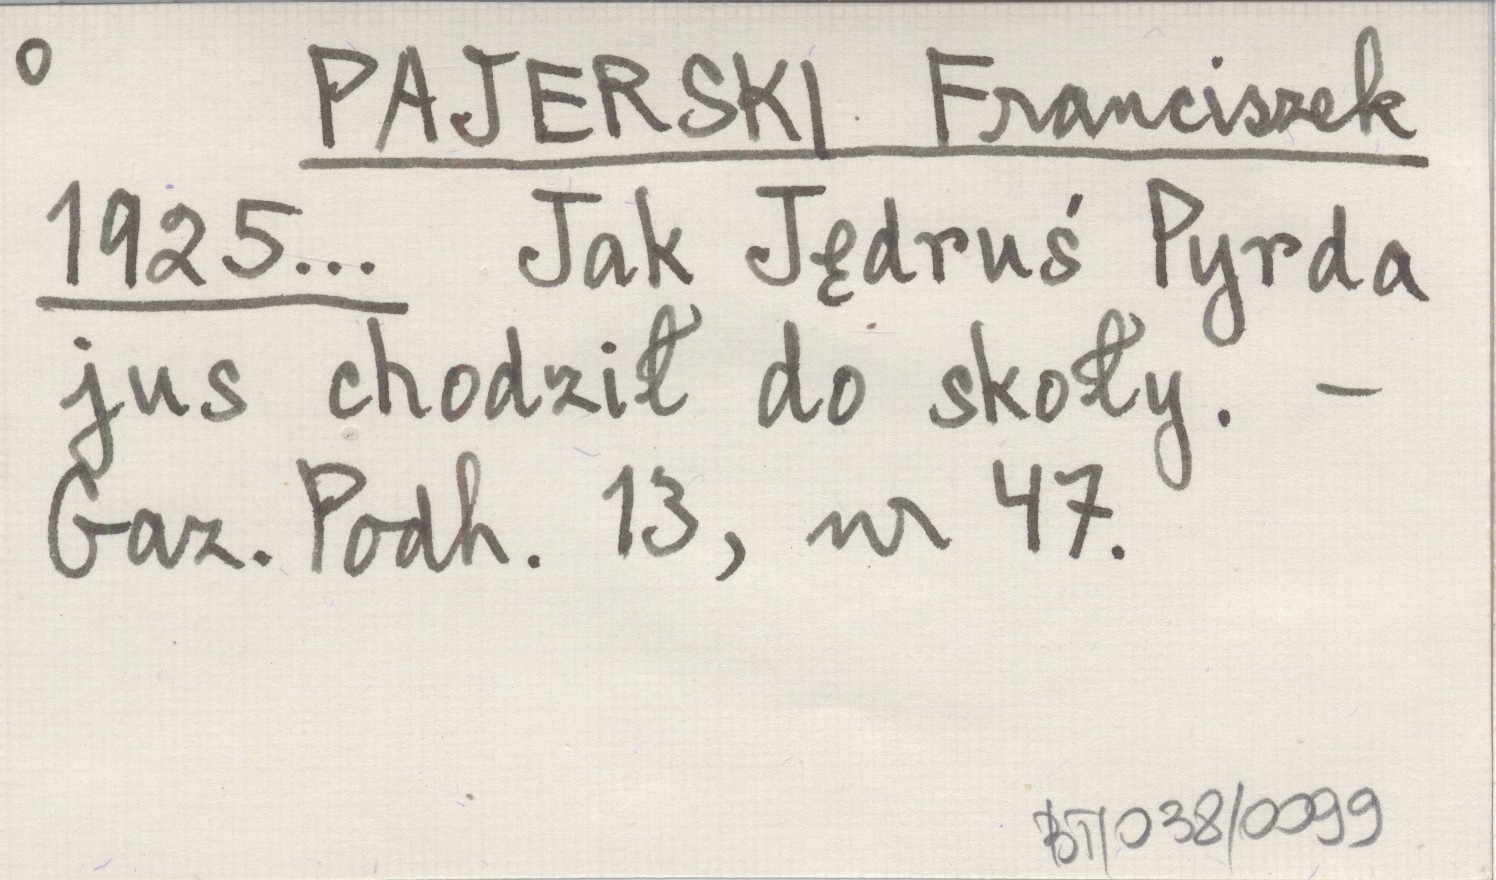 o PAJERSKI Franciszek
1925... Jak Jędruś Pyrda
jus chodził do skoły. –
Gaz. Podh. 13, nr 47.
BT/038/0099